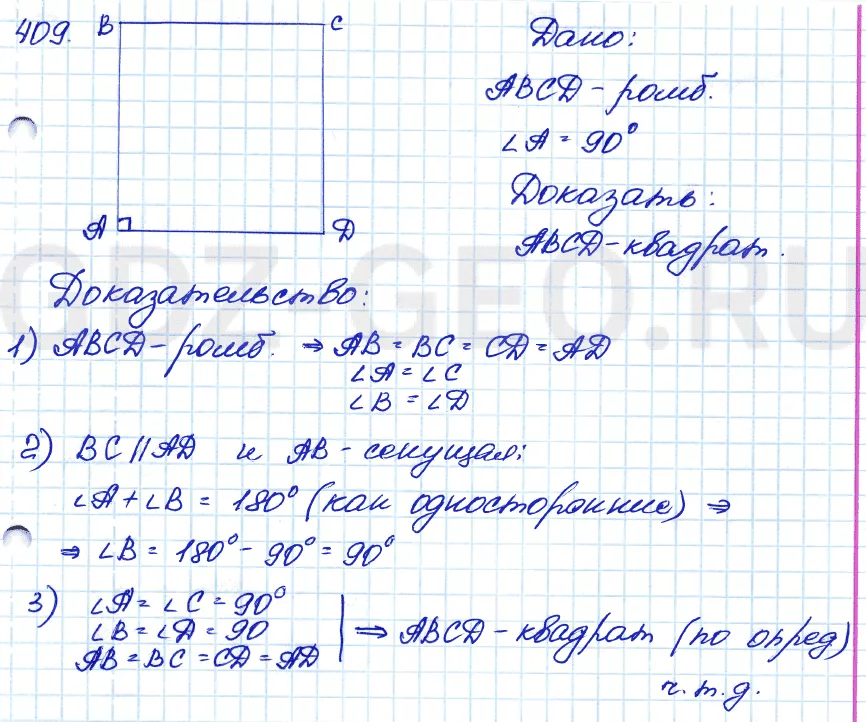 409.
B C
A D
Дано:
ABCD - ромб.
∠A = 90°
Доказать:
ABCD - квадрат.
GDZ-GEO.RU
Доказательство:
1) ABCD - ромб. ⇒ AB = BC = CD = AD
∠A = ∠C
∠B = ∠D
2) BC || AD и AB - секущая:
∠A + ∠B = 180° (как односторонние) ⇒
⇒ ∠B = 180° - 90° = 90°
3) ∠A = ∠C = 90°
∠B = ∠D = 90
AB = BC = CD = AD
⇒ ABCD - квадрат (по опред)
ч.т.д.